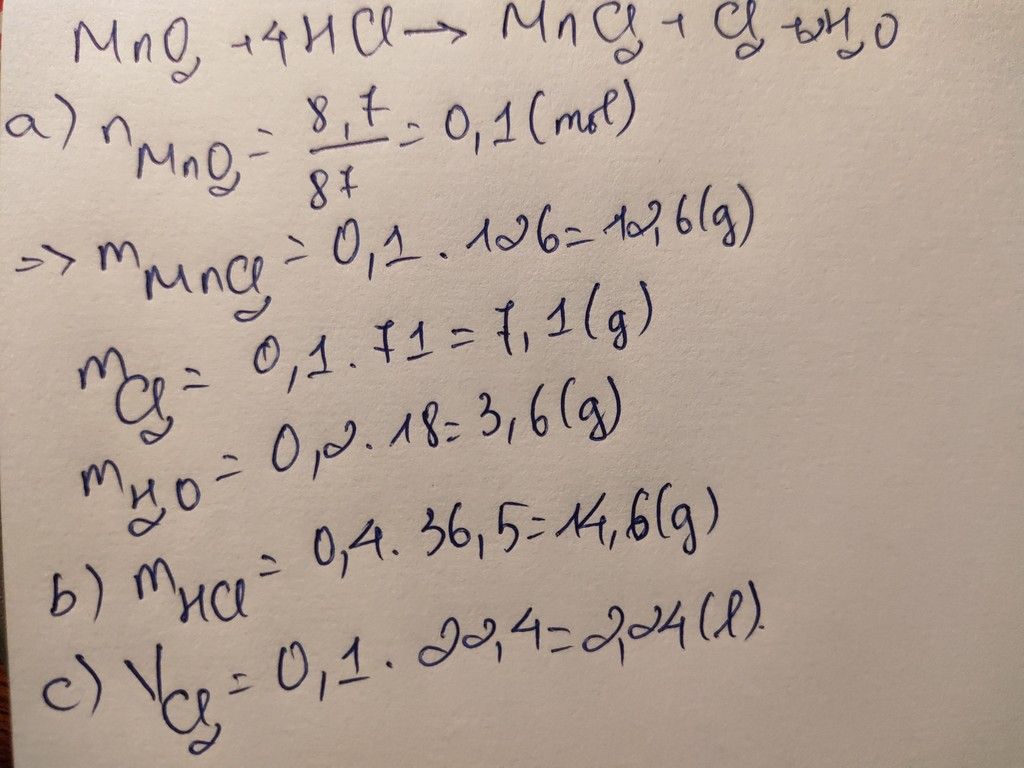 MnO₂ + 4HCl → MnCl₂ + Cl₂ + 2H₂O
a) nMnO₂ = 8,7/87 = 0,1 (mol)
=> mMnCl₂ = 0,1 . 126 = 12,6 (g)
mCl₂ = 0,1 . 71 = 7,1 (g)
mH₂O = 0,2 . 18 = 3,6 (g)
b) mHCl = 0,4 . 36,5 = 14,6 (g)
c) VCl₂ = 0,1 . 22,4 = 2,24 (l).